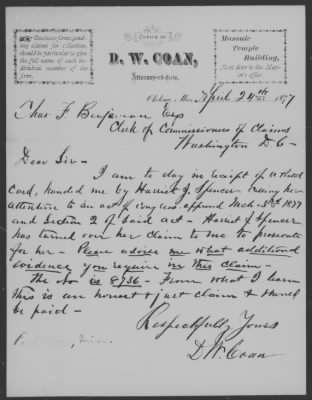 Business firms sending claims for collection, should be particular to give the full name of each individual member of the firm.
OFFICE OF
D. W. COAN,
Attorney-at-law,
Masonic Temple Building,
Next door to the Mayor's office
Okolona, Miss., April 24th 1877
Thos. F. Benjaman Esq
Clerk of Commissioners of Claims
Washington D. C-
Dear Sir-
I am to day in receipt of a Postal
Card, handed me by Harriet J. Spencer
attention to an act of Congress approved Mch. 3rd 1877
and Section 2 of said act - Harriet J Spencer
has turned over her claim to me to prosecute
for her - Please advise me what additional
evidence you require in this claim-
The No is 8736 - From what I learn
this is an honest & just claim & should
be paid -
Respectfully Yours
D. W. Coan